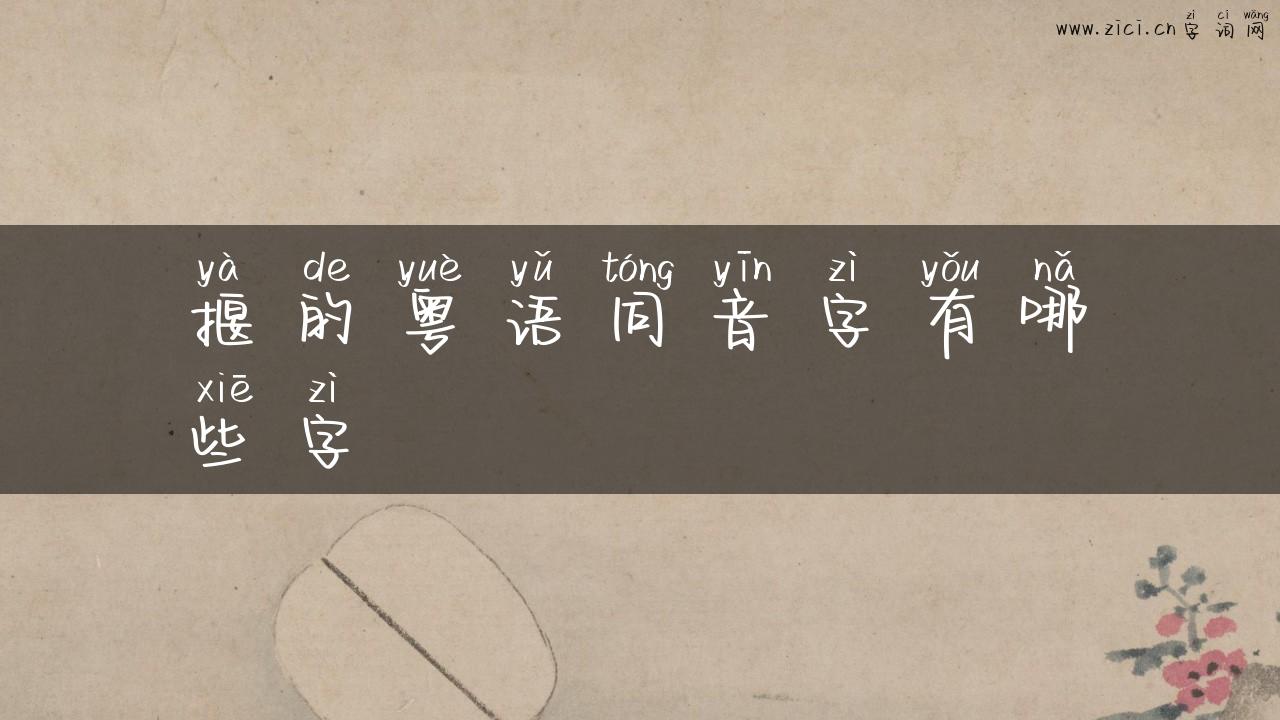 zì cí wǎng
www.zici.cn字词网
yà de yuè yǔ tóng yīn zì yǒu nǎ
揠的粤语同音字有哪
xiē zì
些字